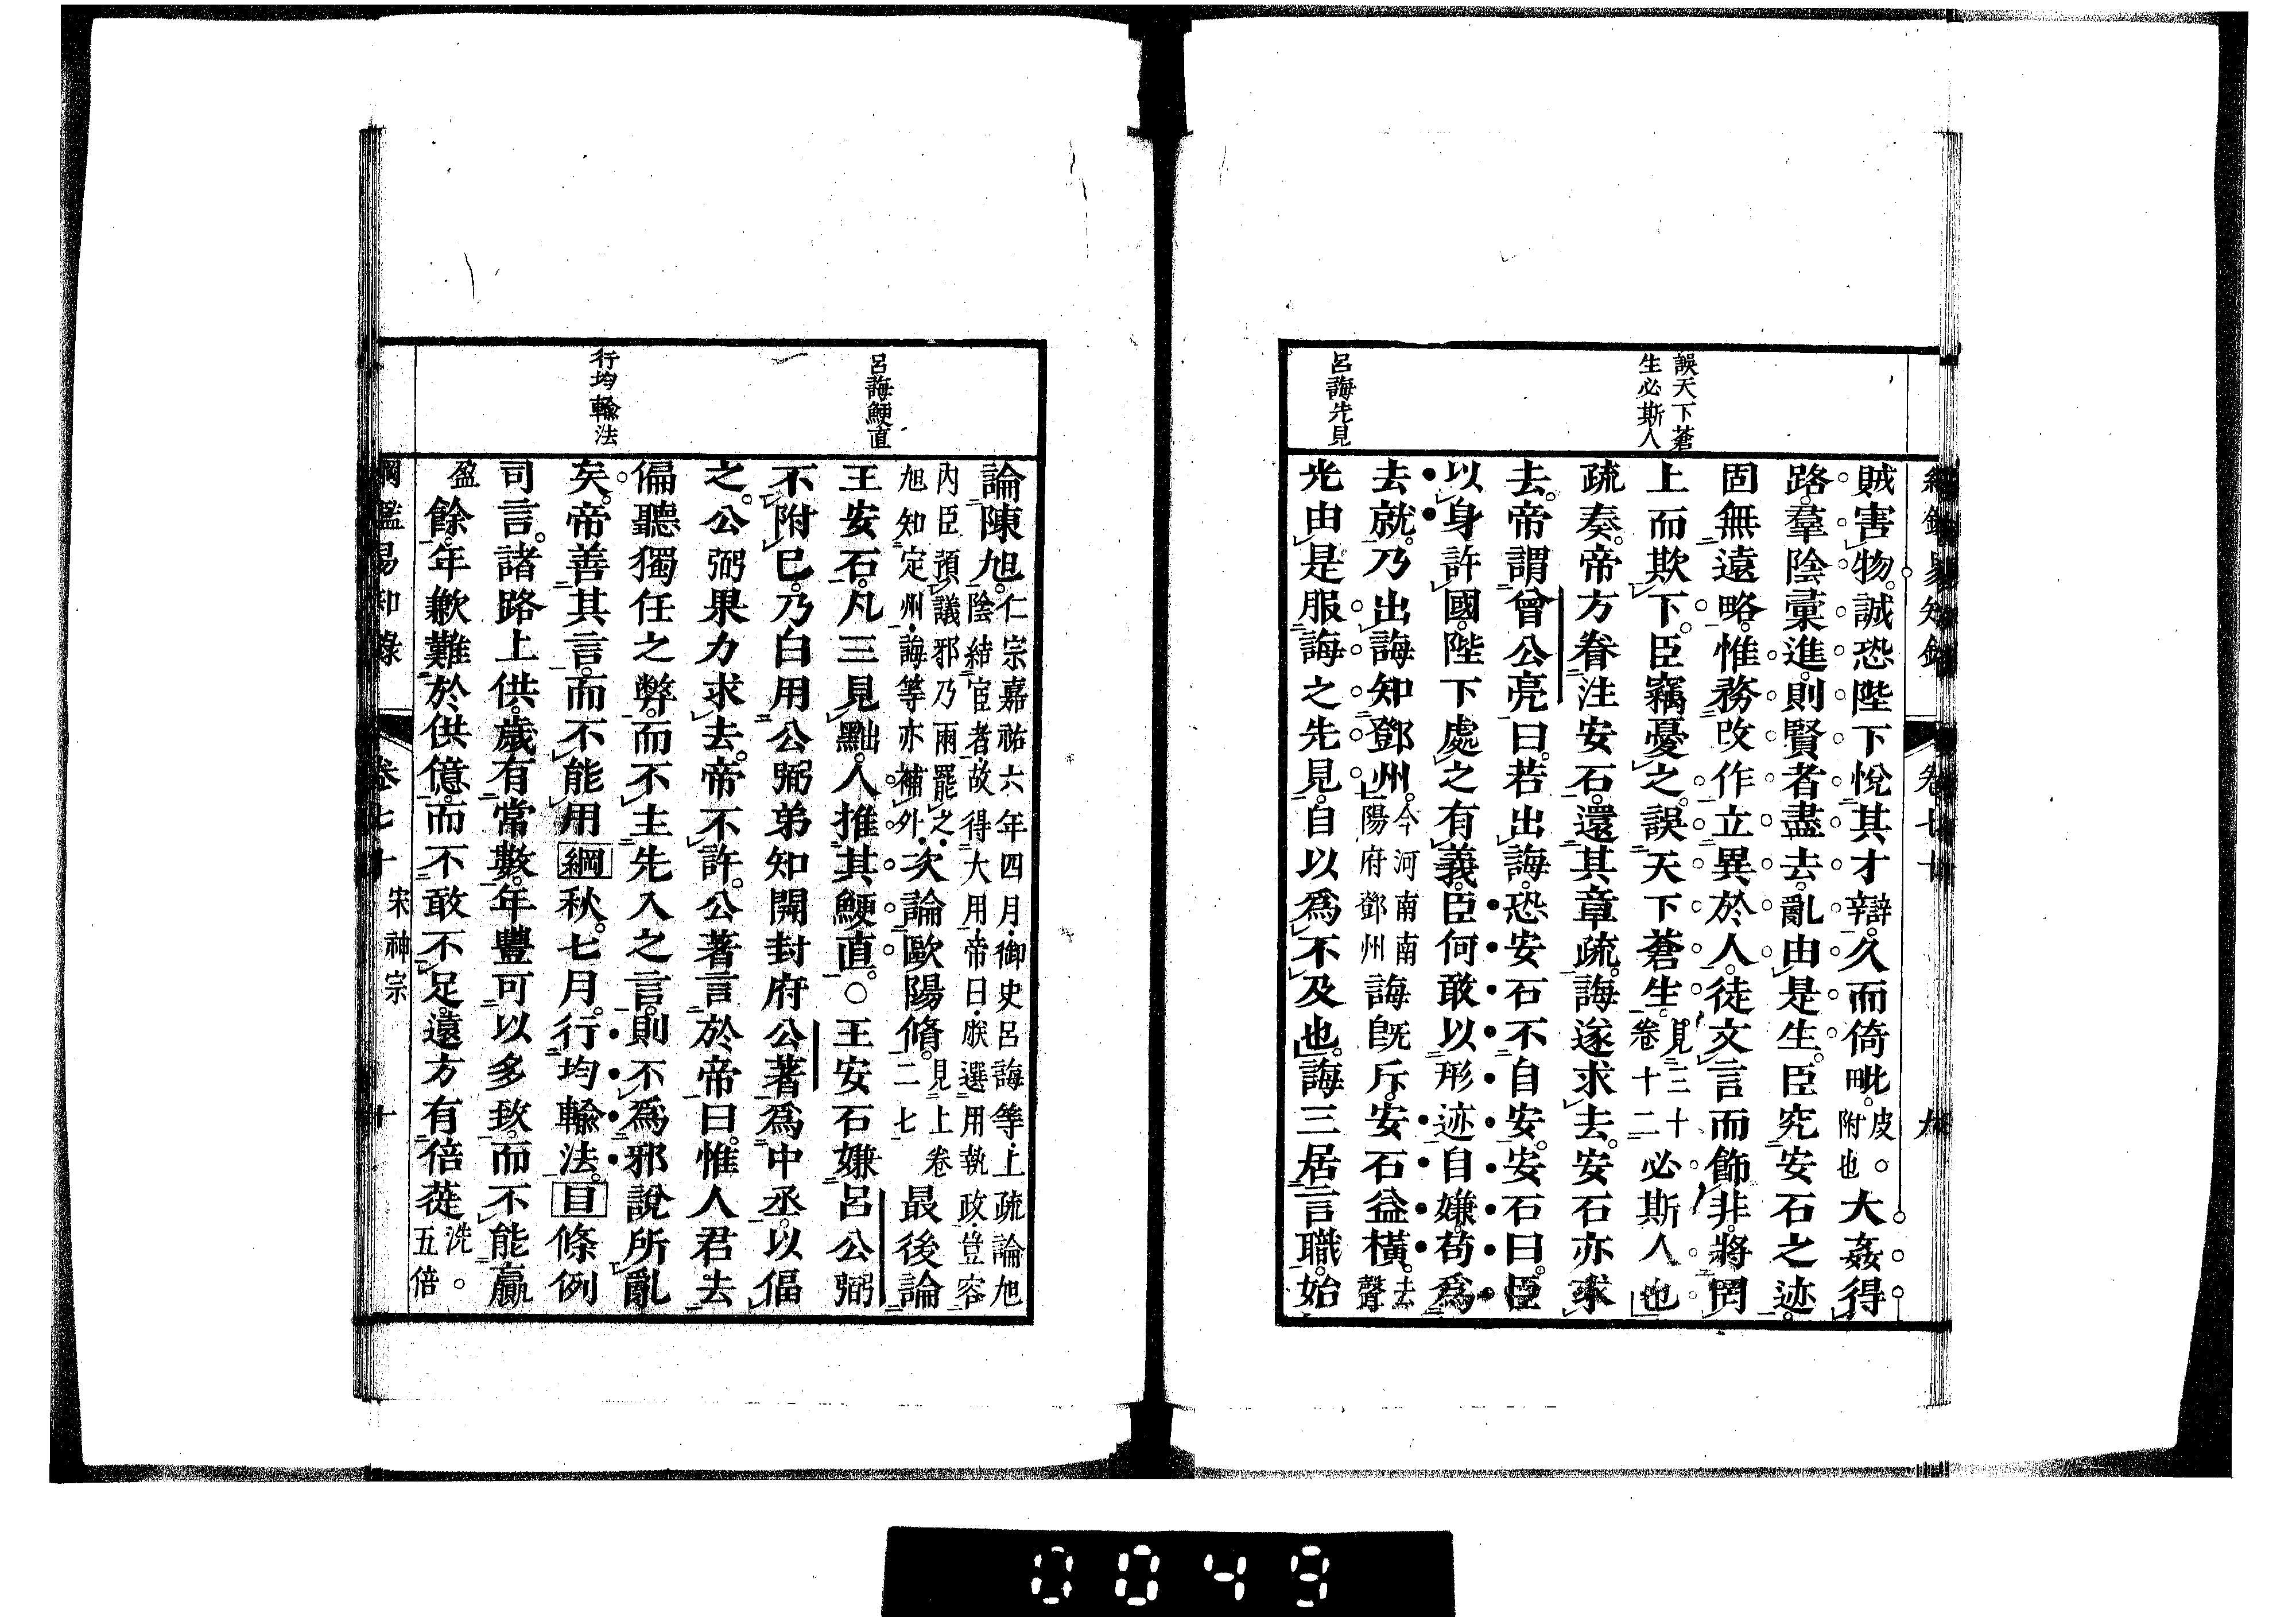 綱鑑易知錄 卷七十 九
誤天下蒼
生必斯人
呂誨先見
賊害物。誠恐陛下悅其才辯。久而倚毗。皮。附也大姦得
路。羣陰彙進。則賢者盡去。亂由是生。臣究安石之迹。
固無遠略。惟務改作立異於人。徒文言而飾非。將罔
上而欺下。臣竊憂之。誤天下蒼生。見三十卷十二必斯人也
疏奏。帝方眷注安石。還其章疏。誨遂求去。安石亦求
去。帝謂曾公亮曰。若出誨。恐安石不自安。安石曰。臣
以身許國。陛下處之有義。臣何敢以形迹自嫌。苟爲
去就。乃出誨知鄧州。今河南南陽府鄧州誨旣斥。安石益橫。去聲
光由是服誨之先見。自以爲不及也。誨三居言職。始
呂誨鯁直
行均輸法
論陳旭。仁宗嘉祐六年四月御史呂誨等上疏論旭陰結宦者故得大用帝曰朕選用執政豈容
內臣預議邪乃兩罷之旭知定州誨等亦補外次論歐陽脩。見上卷二七最後論
王安石。凡三見黜。人推其鯁直。○王安石嫌呂公弼
不附已。乃白用公弼弟知開封府公著爲中丞。以偪
之。公弼果力求去。帝不許。公著言於帝曰。惟人君去
偏聽獨任之弊。而不主先入之言。則不爲邪說所亂
矣。帝善其言。而不能用綱秋。七月。行均輸法。目條例
司言。諸路上供。歲有常數。年豐可以多致。而不能贏
盈餘。年歉難於供億。而不敢不足。遠方有倍蓰洗。五倍
綱鑑易知錄 卷七十 宋神宗 十
0049